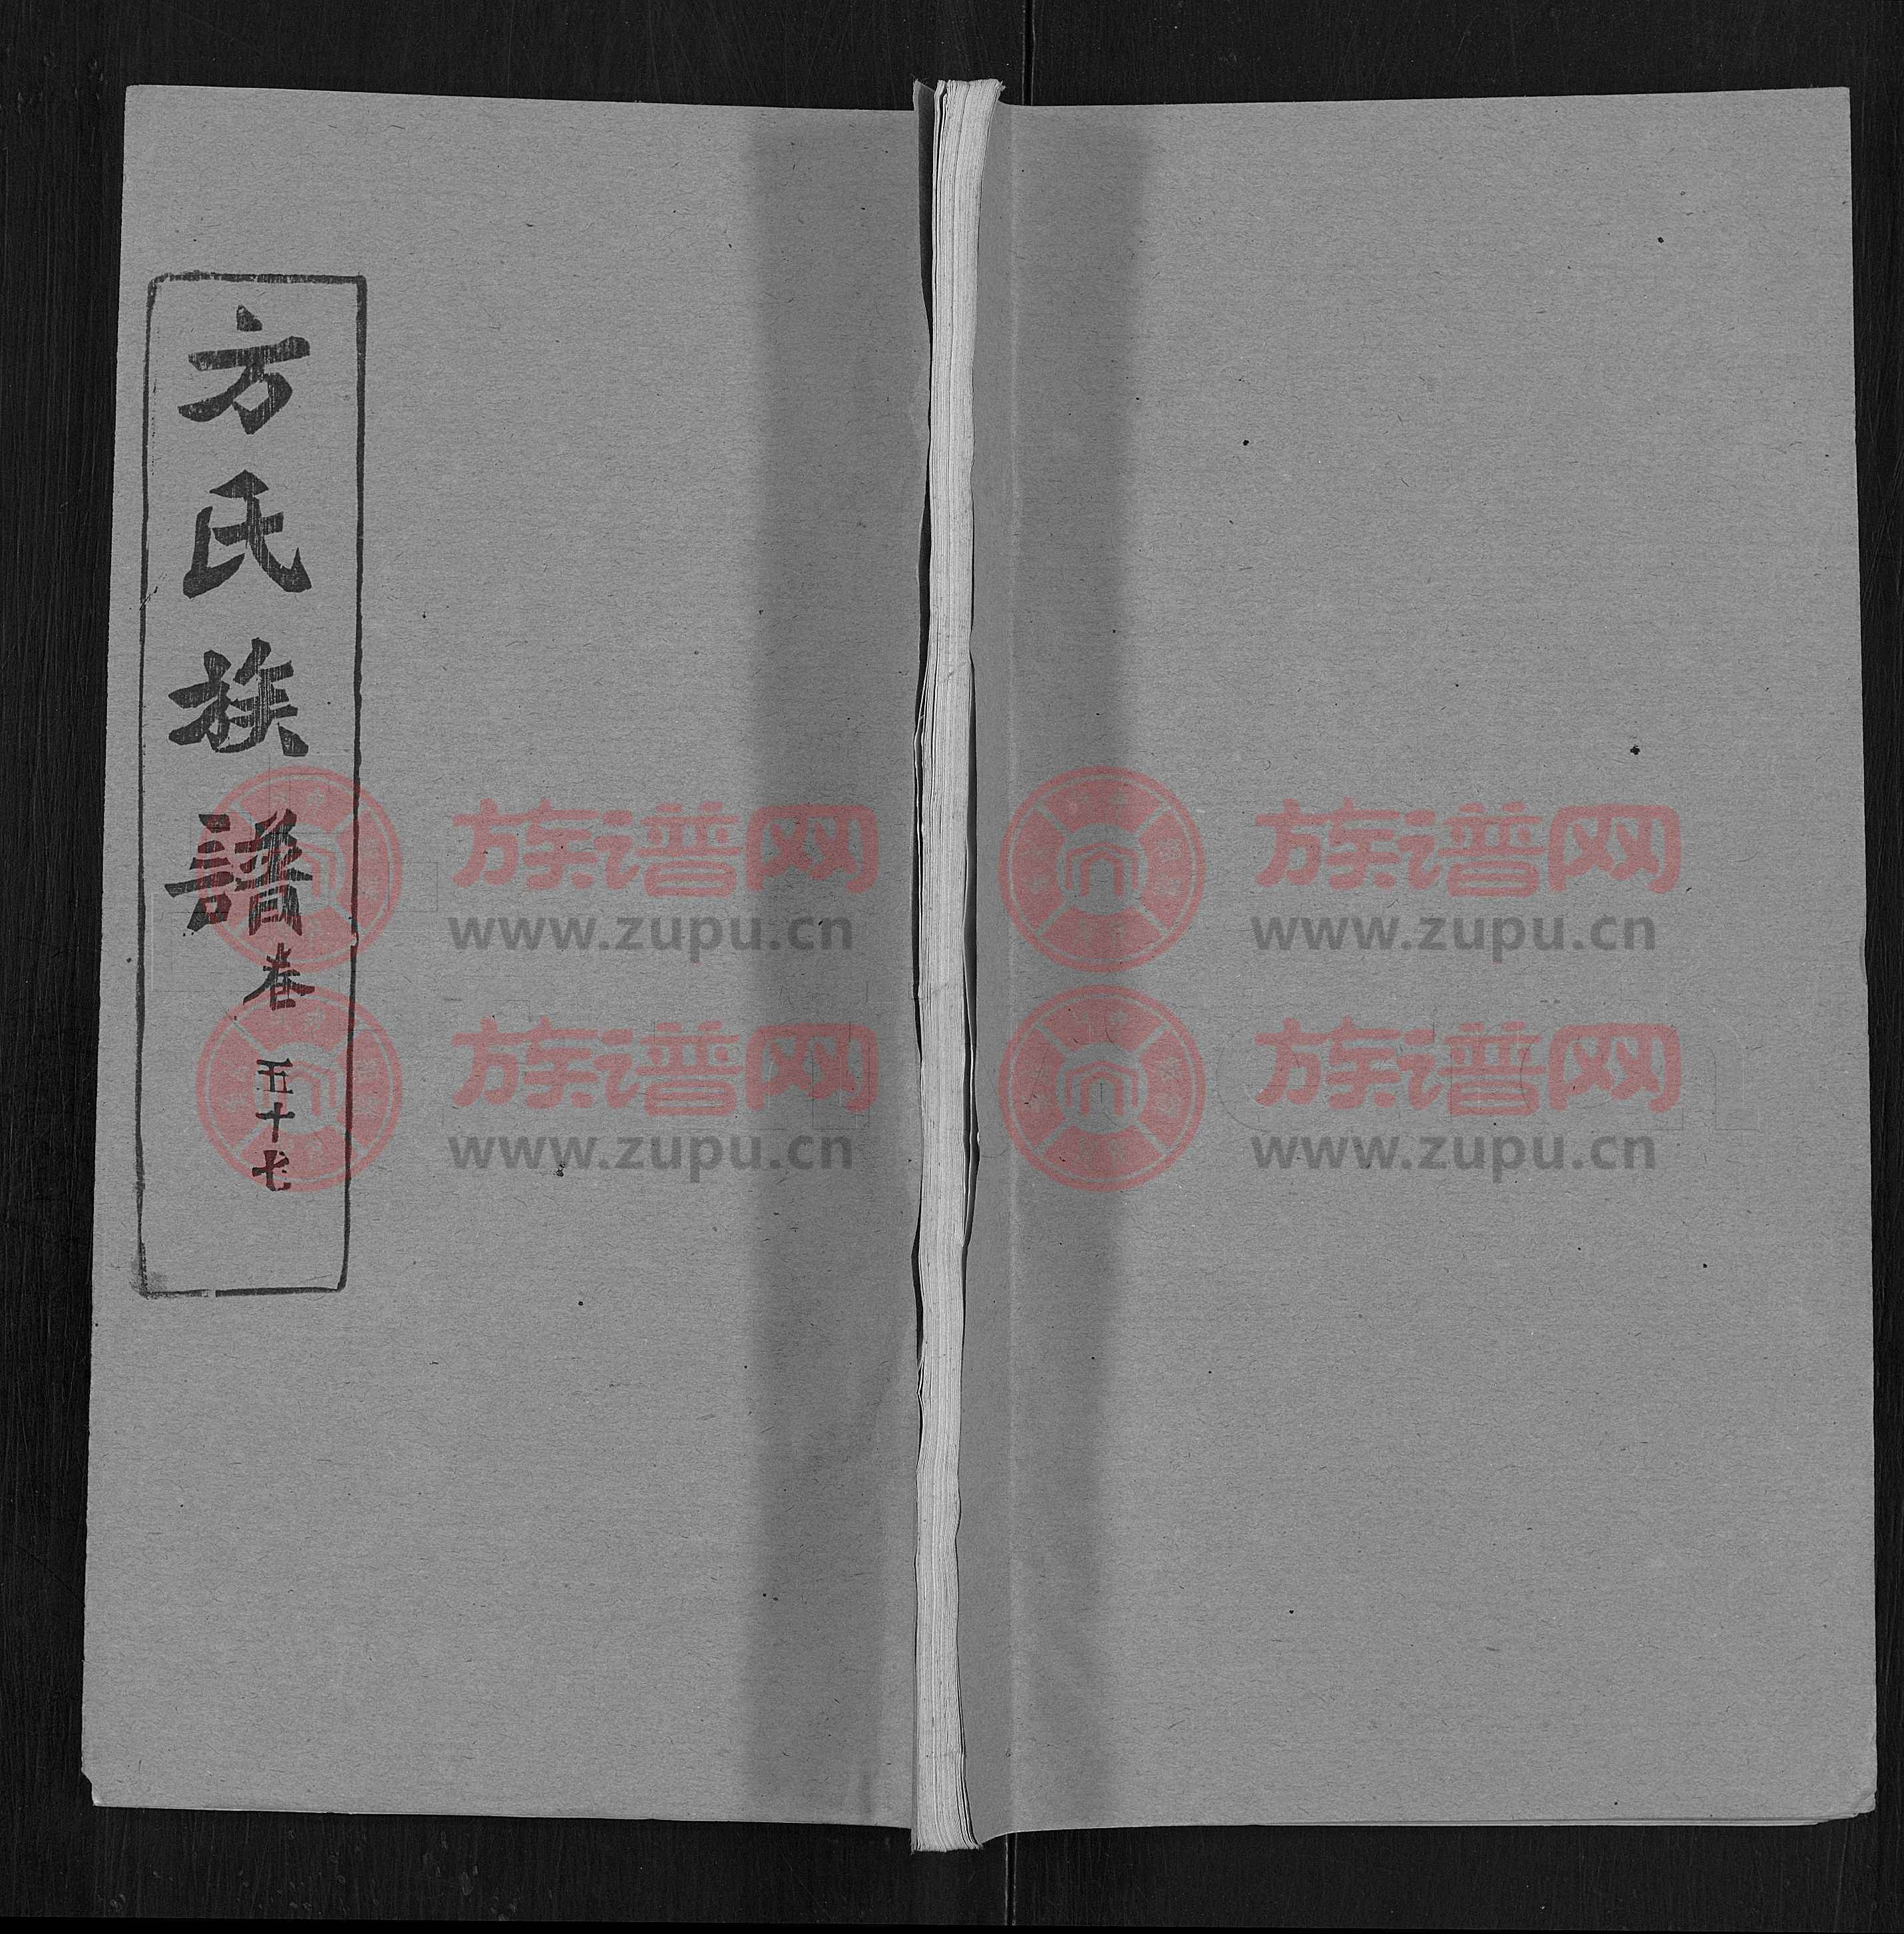 方氏族譜
卷五十七
族谱网
www.zupu.cn
族谱网
www.zupu.cn
族谱网
www.zupu.cn
族谱网
www.zupu.cn